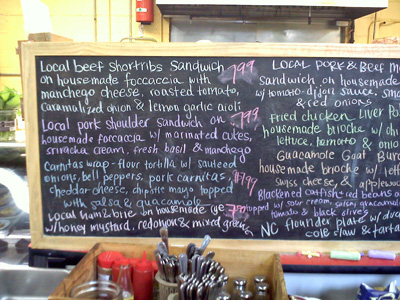 Local beef shortribs Sandwich
on housemade foccaccia with 7.99
manchego cheese, roasted tomato,
caramalized onion & lemon garlic aioli
Local pork shoulder sandwich on 7.99
housemade foccaccia w/ marinated cukes,
sriracha cream, fresh basil & manchego
Carnitas wrap - flour tortilla w/ sauteed
onions, bell peppers, pork carnitas, $7.99
cheddar cheese, chipotle mayo topped
with salsa & guacamole
Local ham & brie on housemade rye
w/ honey mustard, red onions & mixed greens
LOCAL PORK & Beef m
Sandwich on housemade
w/ tomato-dijon sauce, smo
& red onions
Fried chicken Liver Po
housemade brioche w/ chi
lettuce, tomato & onio
Guacamole Goat Burg
housemade brioche w/ lett
swiss cheese, & applewoo
Blackened catfish: red beans a
topped w/ sour cream, salsa, guacamole
tomato & black olives
NC flounder plate w/
cole slaw & tarta